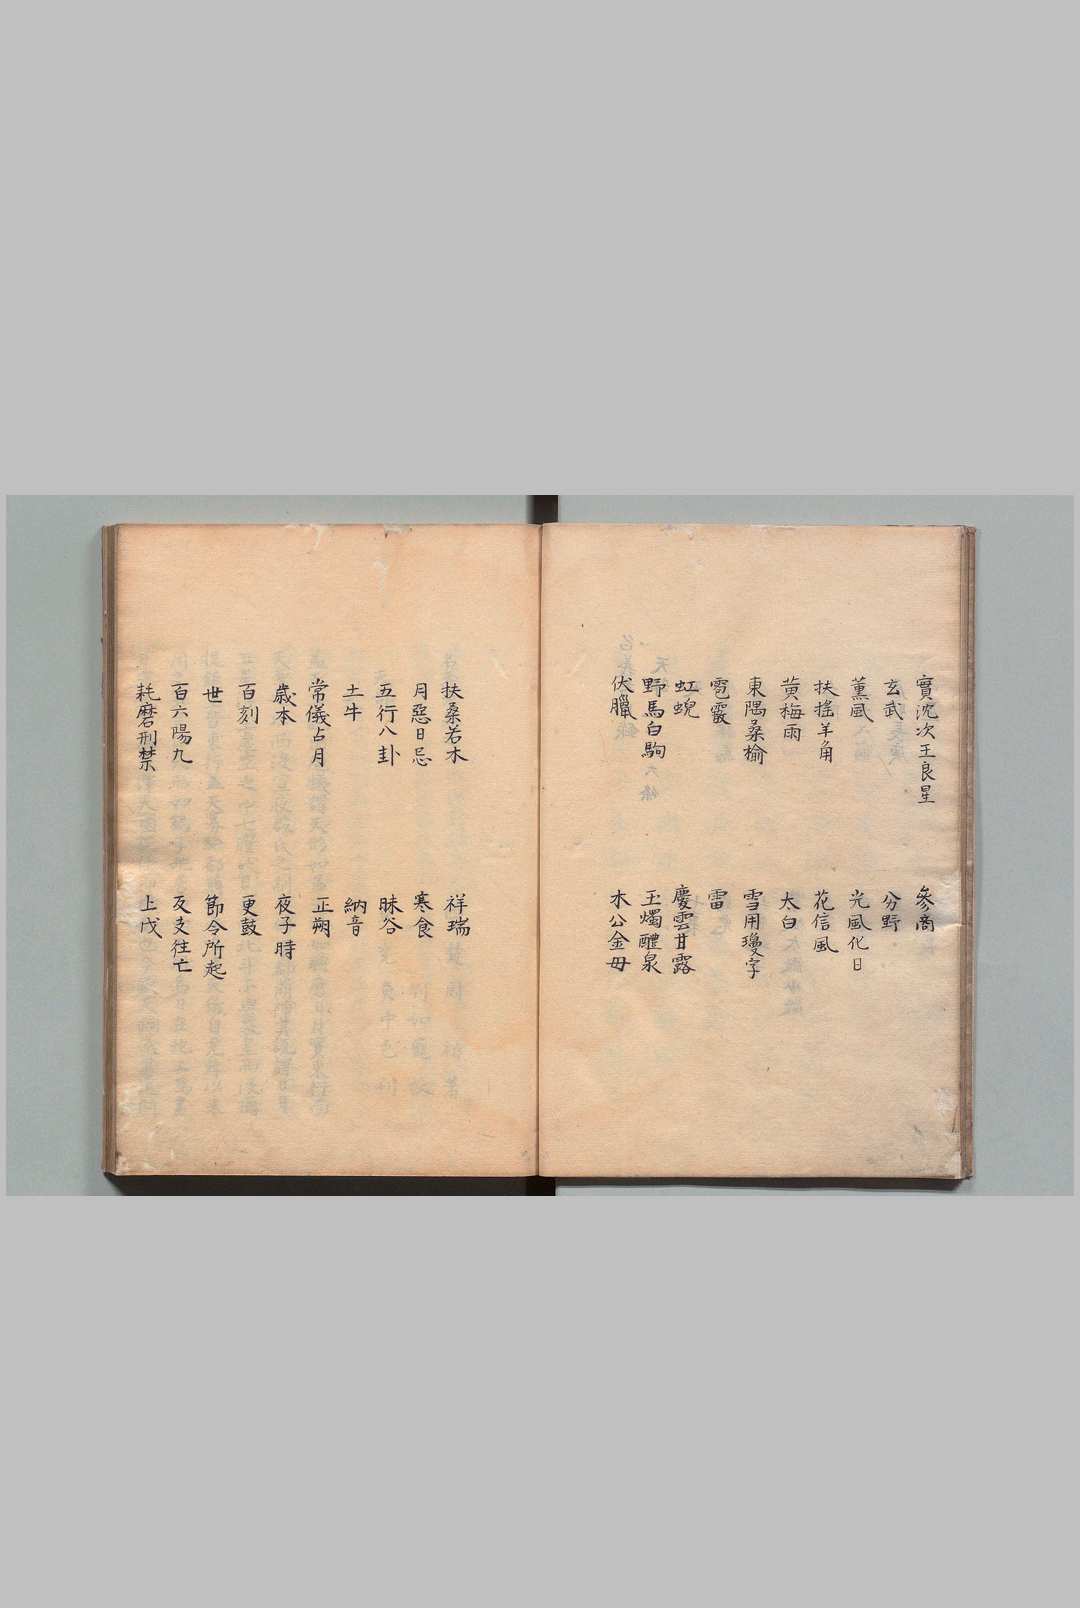 實沈次王良星 參商
玄武 分野
薫風 光風化日
扶搖羊角 花信風
黄梅雨 太白
東隅桑榆 雪用瓊字
雹霰 雷
虹蜺 慶雲甘露
野馬白駒 玉燭醴泉
伏臘 木公金母
扶桑若木 祥瑞
月惡日忌 寒食
五行八卦 昧谷
土牛 納音
常儀占月 正朔
歳本 夜子時
百刻 更鼓
世 節令所起
百六陽九 反支往亡
耗磨刑禁 上戊